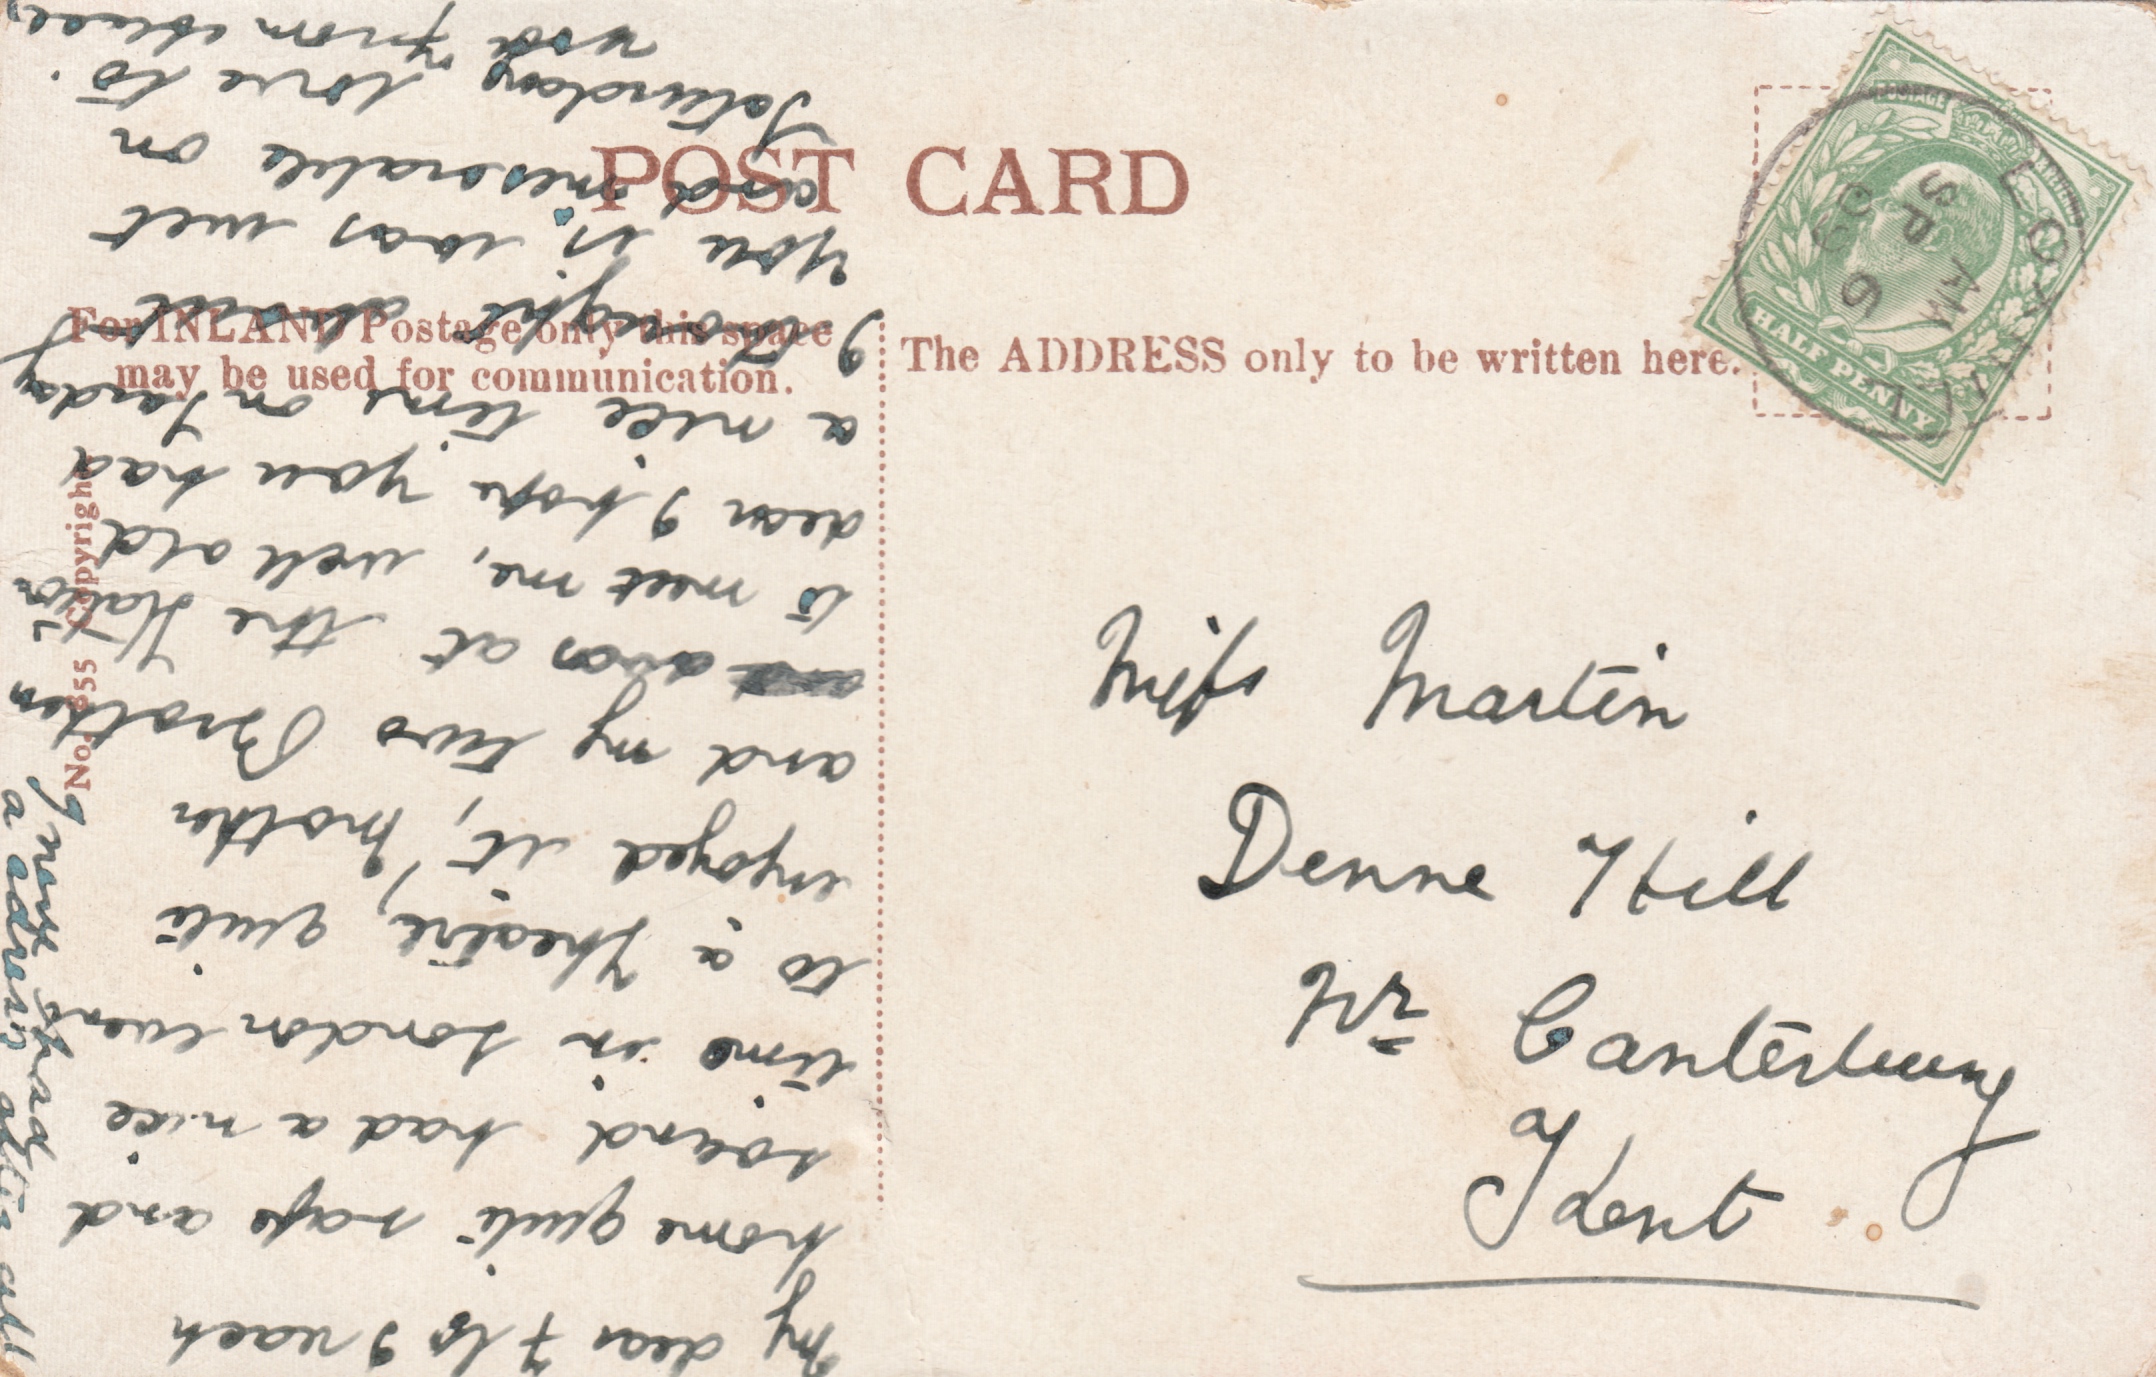 POST CARD
For INLAND Postage only this space
may be used for communication.
The ADDRESS only to be written here.
No. 855 Copyright
HALF PENNY
POSTAGE
SP 6
AM
09
Miss Martin
Denne Hill
Nr Canterbury
Kent
My dear F to I reach
home quite safe and
sound, had a nice
time in London went
to a Theatre, quite
enjoyed it, Mother
and my two Brothers
was at the Station
to meet me, well old
dear I hope you had
a nice time on Sunday
I thought about
you it was wet
and miserable on
Saturday, love to
you from